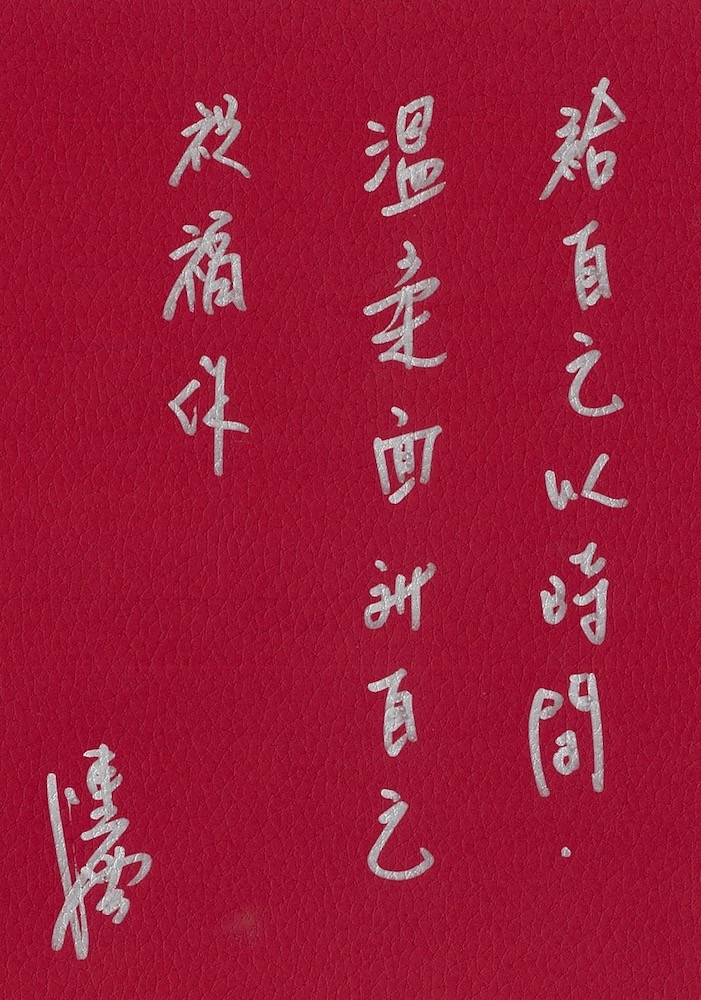 給自己以時間．
溫柔面對自己
祝福你